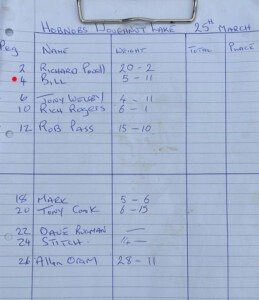 HOBNOBS DOUGHNUT LAKE 25TH MARCH
Peg NAME WEIGHT TOTAL PLACE
2 RICHARD Powell 20 - 2
4 BILL 5 - 11
6 TONY 4 - 11
10 RICH ROGERS 6 - 1
12 ROB PASS 15 - 10
18 MARK 5 - 6
20 TONY COOK 6 - 15
22 DAVE —
24 STITCH. —
26 Allan ORAM 28 - 11